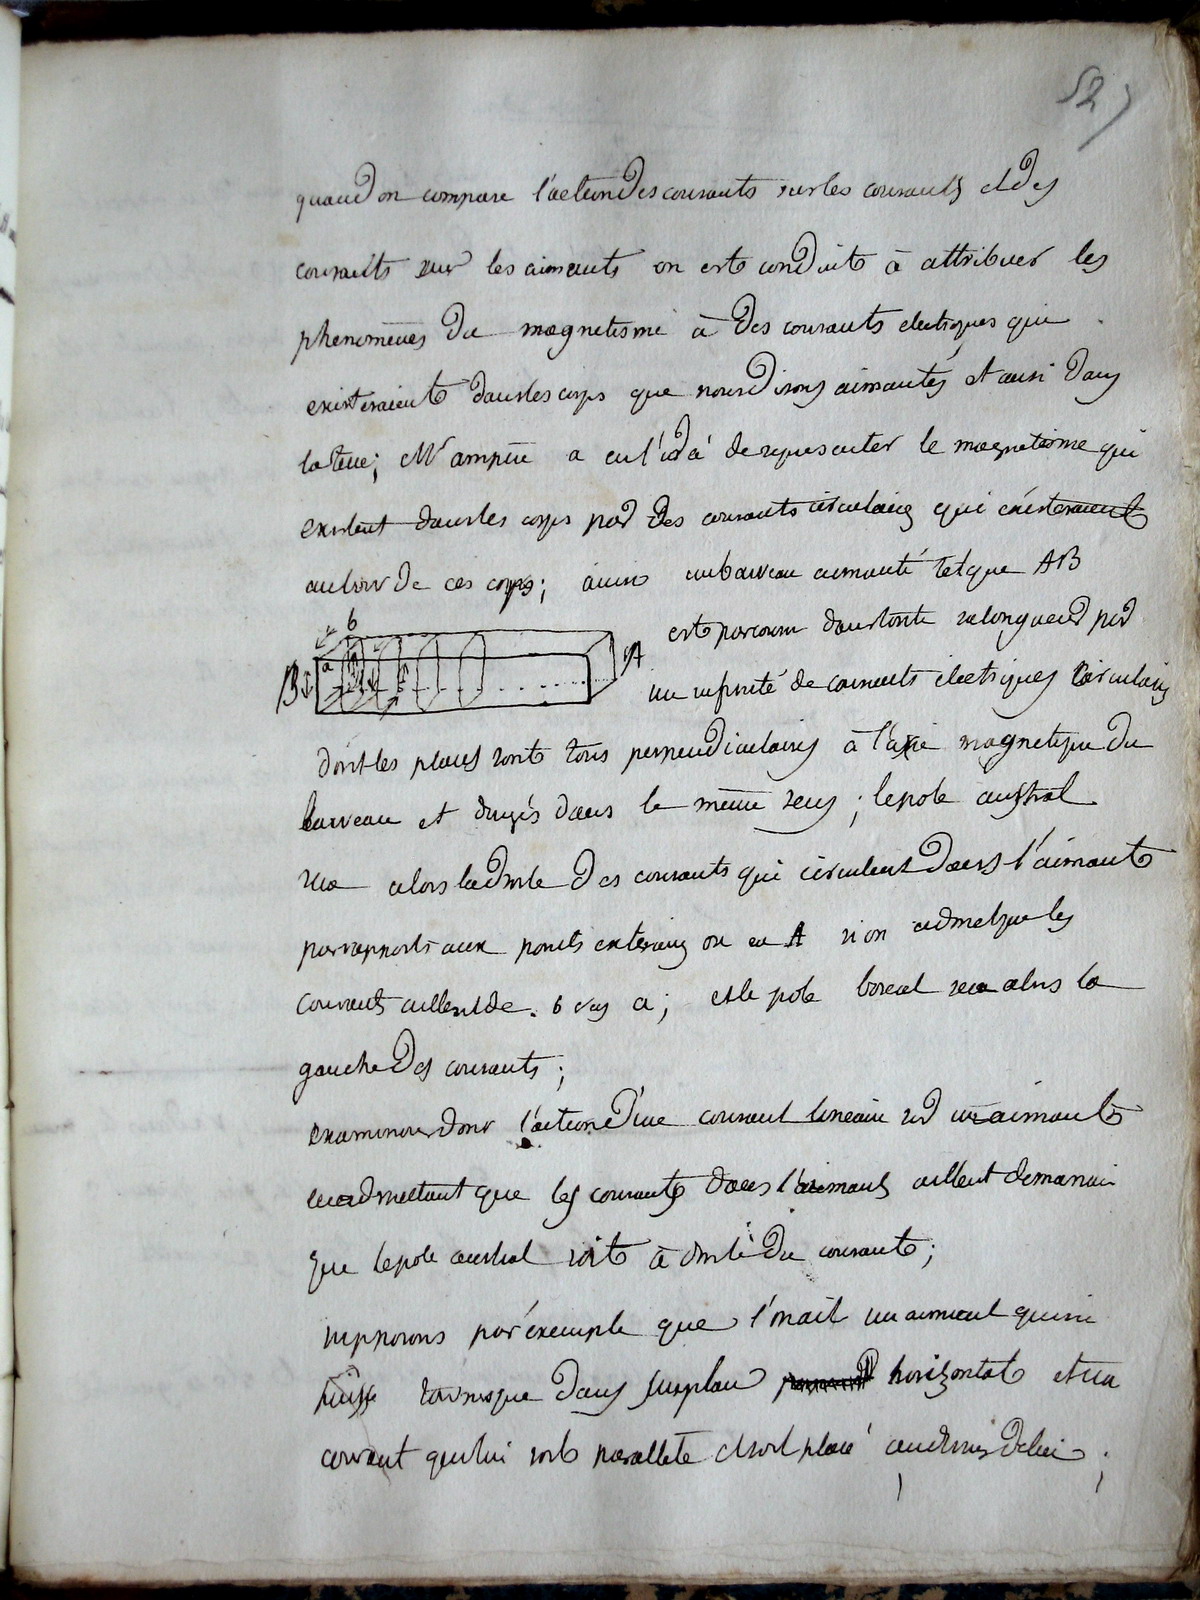 52
quand on compare l'action des courants sur les courants et des
courants sur les aimants on est conduit à attribuer les
phenomènes du magnetisme à des courants electriques qui
existeraient dans les corps que nous disons aimantés et aussi dans
la terre; Mr ampere a eu l'idée de representer le magnetisme qui
existent dans les corps par des courants circulaires qui existeraient
autour de ces corps; ainsi un barreau aimanté tel que AB
b
a
B
A
est parcouru dans toute sa longueur par
une infinité de courants electriques circulaires
dont les plans sont tous perpendiculaires à l'axe magnetique du
barreau et dirigés dans le même sens; le pole austral
sera alors la droite des courants qui circulent dans l'aimant
par rapport aux points exterieurs ou en A si on admet que les
courants aillent de b vers a; et le pole boreal sera alors la
gauche des courants;
examinons donc l'action d'un courant lineaire sur un aimant
en admettant que les courants dans l'aimant aillent de maniere
que le pole austral soit à droite du courant;
supposons par exemple que l'on ait un aimant qui ne
puisse tourner que dans un plan horizontal et un
courant qui lui soit parallele et soit placé au dessus de lui;